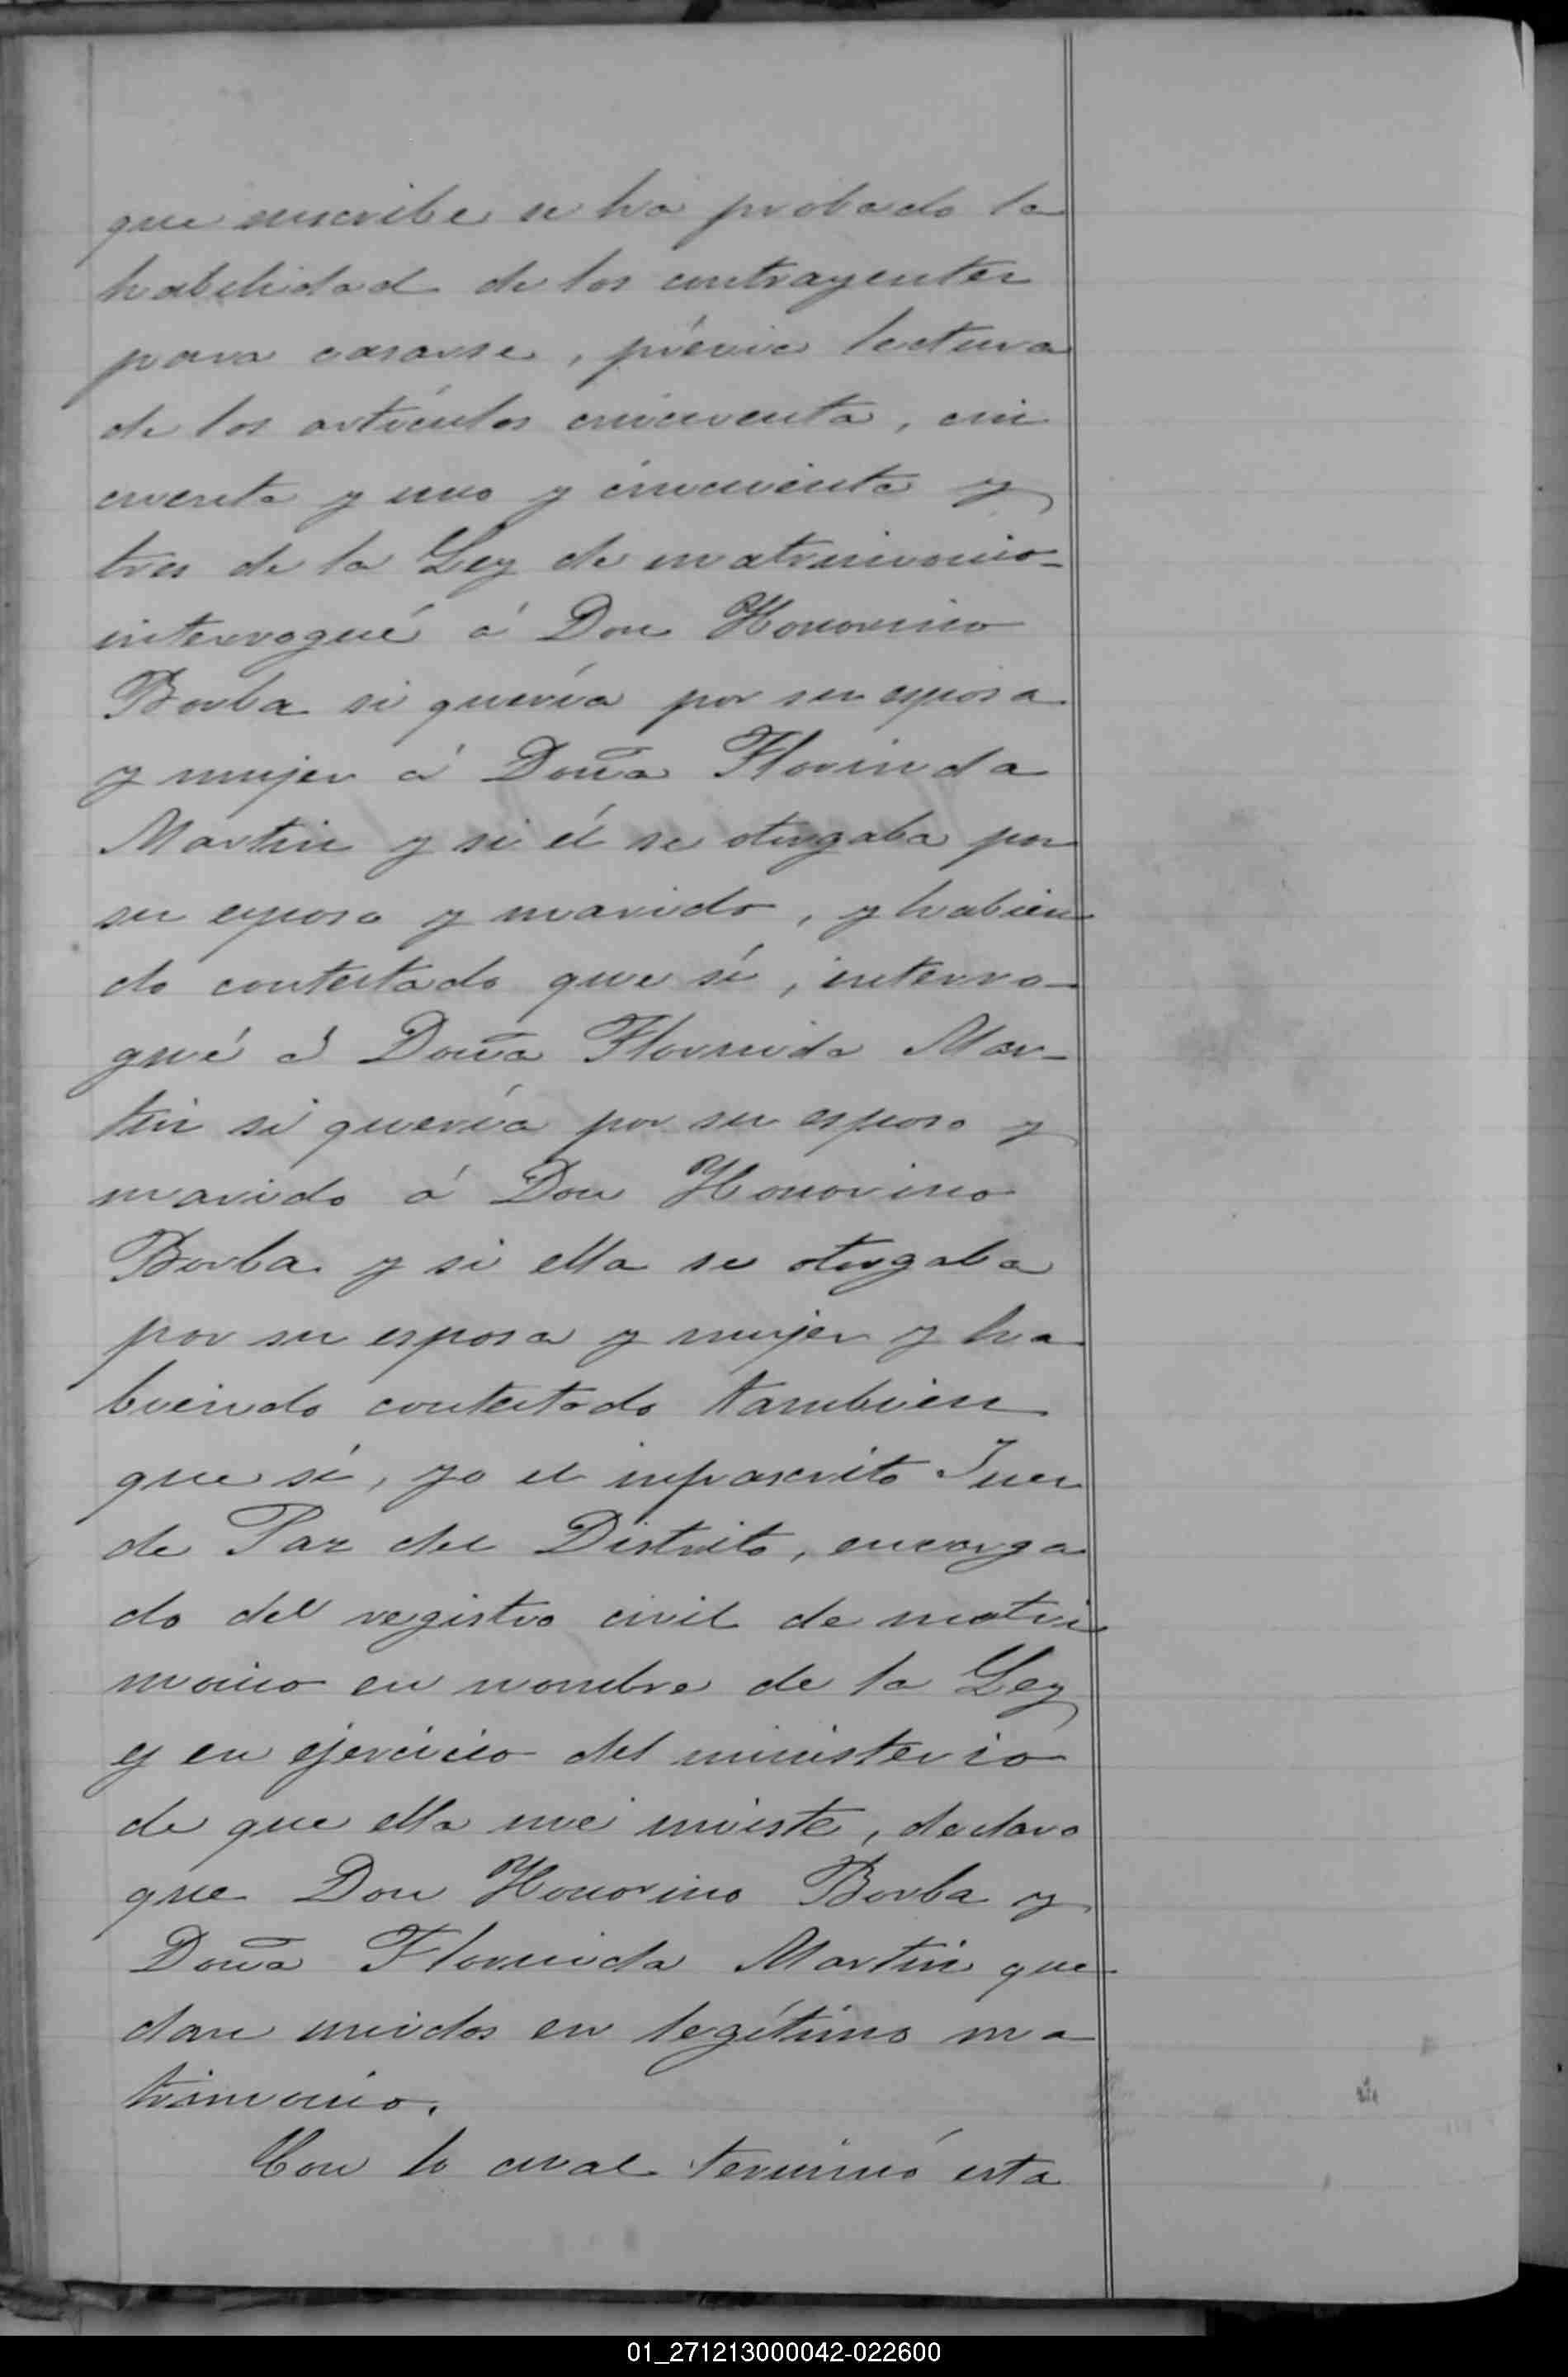 que suscribe se ha probado la
habilidad de los contrayentes
para casarse, prévia lectura
de los artículos cincuenta, cin
cuenta y uno y cincuenta y
tres de la Ley de matrimonio-
interrogué á Don Honorino
Borba si quería por su esposa
y mujer á Doña Florinda
Martin y si él se otorgaba por
su esposo y marido, y habien
do contestado que sí, interro-
gué á Doña Florinda Mar-
tin si quería por su esposo y
marido á Don Honorino
Borba y si ella se otorgaba
por su esposa y mujer y ha
biendo contestado tambien
que sí, yo el infrascrito Juez
de Paz del Distrito, encarga
do del registro civil de matri
monio en nombre de la Ley
y en ejercicio del ministerio
de que ella me inviste, declaro
que Don Honorino Borba y
Doña Florinda Martin que
dan unidos en legítimo ma
trimonio.
Con lo cual terminó esta
01_271213000042-022600